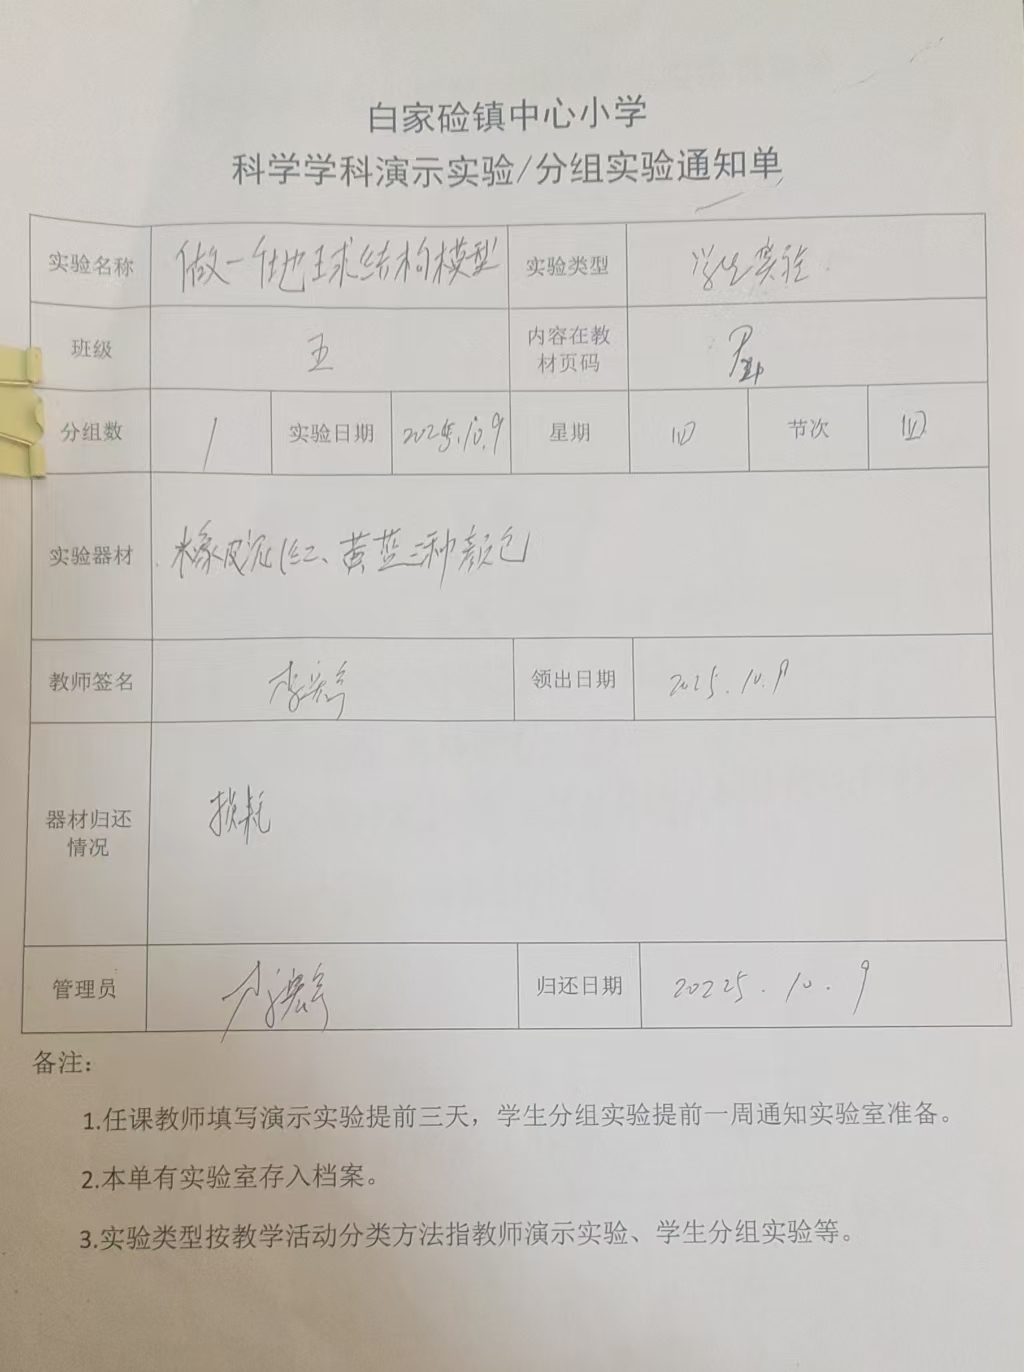 白家硷镇中心小学
科学学科演示实验/分组实验通知单
实验名称 做一个地球结构模型 实验类型 学生实验
班级 五 内容在教材页码
分组数 1 实验日期 2025.10.9 星期 四 节次 四
实验器材 橡皮泥红、黄蓝三种颜色
教师签名 领出日期 2025.10.9
器材归还情况 损耗
管理员 归还日期 20225.10.9
备注：
1.任课教师填写演示实验提前三天，学生分组实验提前一周通知实验室准备。
2.本单有实验室存入档案。
3.实验类型按教学活动分类方法指教师演示实验、学生分组实验等。